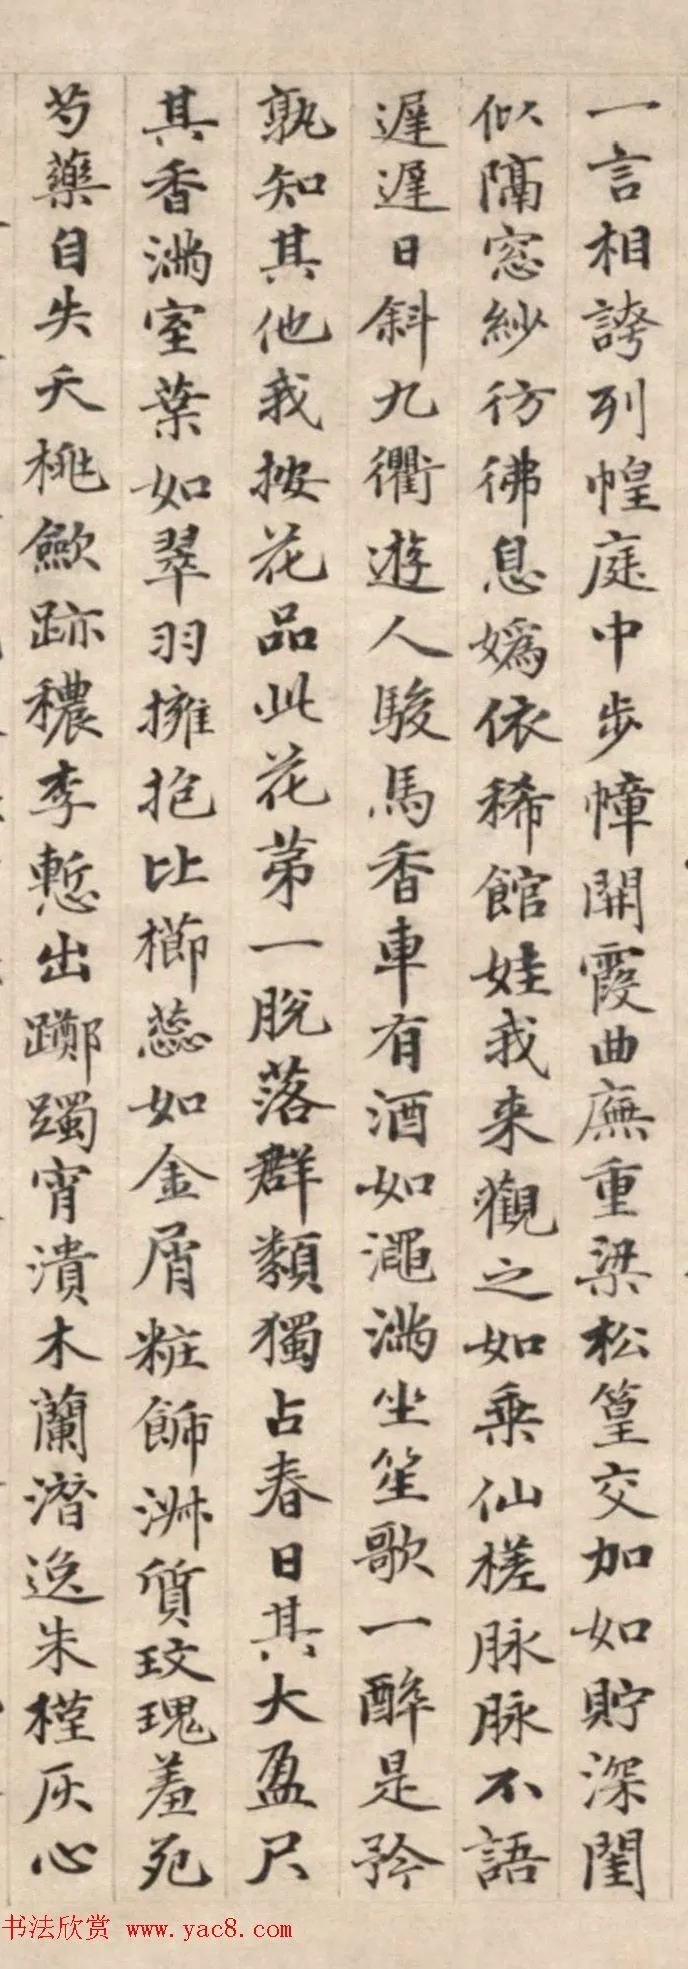 一言相誇列幄庭中步幛開霞曲廡重梁松篁交加如貯深閨
似隔窓紗彷彿息媯依稀館娃我来觀之如乘仙槎脉脉不語
遲遲日斜九衢遊人駿馬香車有酒如澠滿坐笙歌一醉是矜
孰知其他我按花品此花第一脫落群類獨占春日其大盈尺
其香滿室葉如翠羽擁抱比櫛蕊如金屑粧飾淋質玫瑰羞死
芍藥自失夭桃歛跡穠李慙出躑躅宵潰木蘭潛逸朱槿灰心
书法欣赏 www.yac8.com